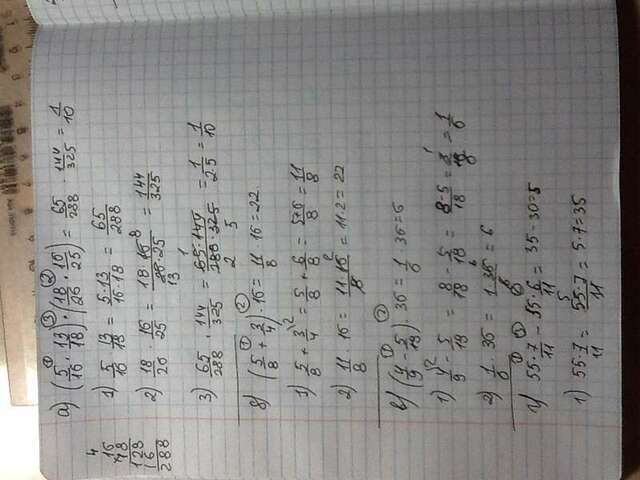 а) (5/16 · 13/18) · (18/26 · 16/25) = 65/288 · 144/325 = 1/10
1) 5/16 · 13/18 = 5·13/16·18 = 65/288
2) 18/26 · 16/25 = 18·16/26·25 = 144/325
3) 65/288 · 144/325 = 65·144/288·325 = 1/2·5 = 1/10
16
18
128
16
288
б) (5/8 + 3/4) · 16 = 11/8 · 16 = 22.
1) 5/8 + 3/4 = 5/8 + 6/8 = 5+6/8 = 11/8
2) 11/8 · 16 = 11·16/8 = 11·2 = 22
в) (4/9 - 5/18) · 36 = 1/6 · 36 = 6
1) 4/9 - 5/18 = 8/18 - 5/18 = 8-5/18 = 3/18 = 1/6
2) 1/6 · 36 = 1·36/6 = 6
г) 55·7/11 - 55·6/11 = 35 - 30 = 5
1) 55·7/11 = 55·7/11 = 5·7 = 35